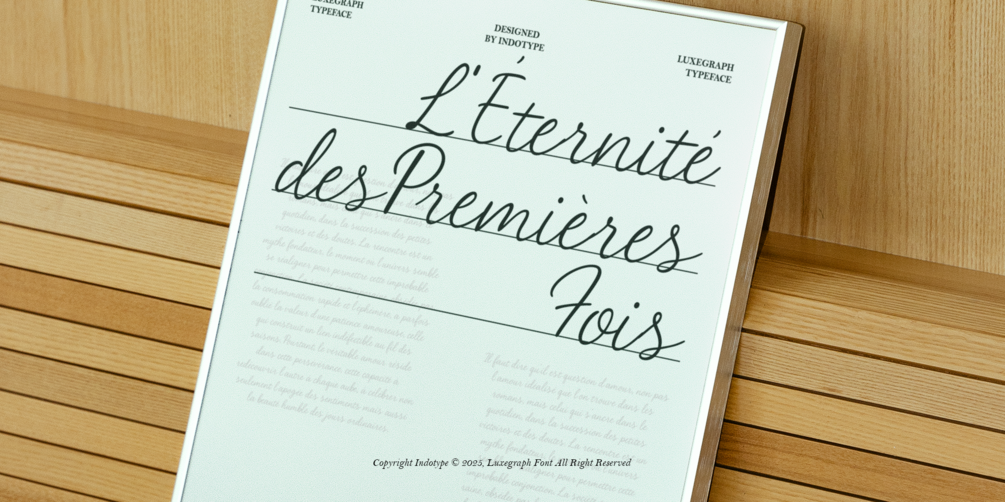 LUXEGRAPH
TYPEFACE
DESIGNED
BY INDOTYPE
LUXEGRAPH
TYPEFACE
L'Éternité
des Premières
Fois
quotidien, dans la succession des petites
victoires et des doutes. La rencontre est un
mythe fondateur, le moment où l'univers semble
se réaligner pour permettre cette improbable
la consommation rapide et l'éphémère, a parfois
oublié la valeur d'une patience amoureuse, celle
qui construit un lien indéfectible au fil des
saisons. Pourtant, le véritable amour réside
dans cette persévérance, cette capacité à
l'autre à chaque aube, à célébrer non
seulement l'apogée des sentiments mais aussi
la beauté humble des jours ordinaires.
Il faut dire qu'il est question d'amour, non pas
l'amour idéalisé que l'on trouve dans les
romans, mais celui qui s'ancre dans le
quotidien, dans la succession des petites
victoires et des doutes. La rencontre est un
mythe fondateur, le
Copyright Indotype © 2025, Luxegraph Font All Right Reserved